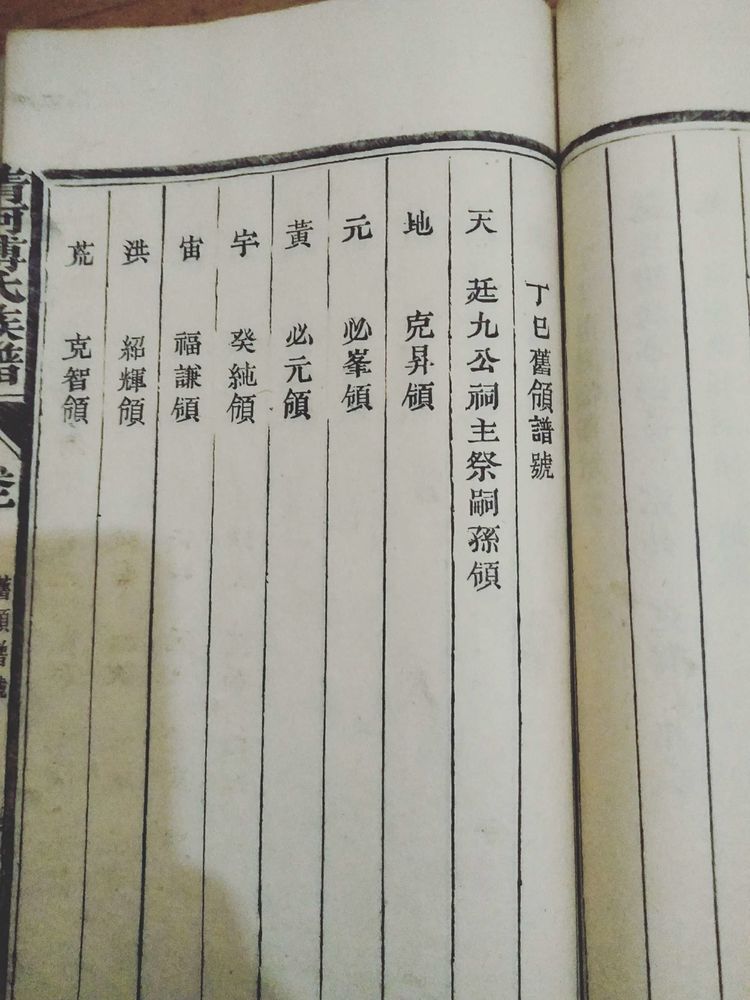 丁巳舊領譜號
天 廷九公祠主祭嗣孫領
地 克昇領
元 必峯領
黃 必元領
宇 癸純領
宙 福謙領
洪 紹輝領
荒 克智領
清河傅氏族譜
舊領譜號